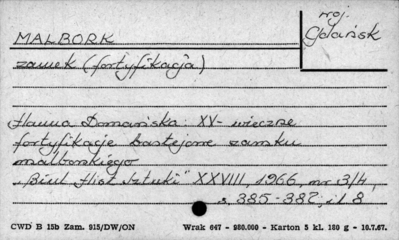 MALBORK
woj.
Gdańsk
zamek (fortyfikacja)
Hanna Domańska: XV-wieczne
fortyfikacje bastejowe zamku
malborskiego
"Biul. Hist. Sztuki" XXVIII, 1966, nr 3/4,
s. 385-387, il. 8
CWD B 15b Zam. 915/DW/ON Wrak 647 - 980.000 - Karton 5 kl. 180 g - 10.7.67.